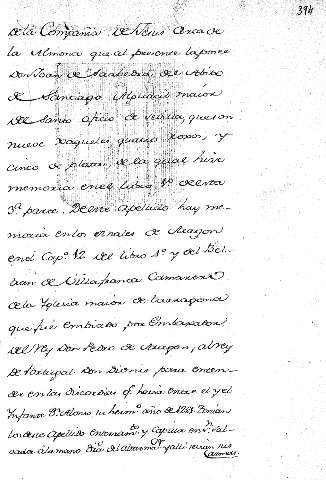 394
de la Compañia de Jesus cerca de
la Almona que al presente la posee
Don Joan de Saabedra, del Abito
de Santiago Alguacil maior
del Santo oficio de sevilla, que son
nueve xaqueles, quatro roxos, y
cinco de plata, de la qual hize
memoria en el libro 1º de esta
3ª parte. De este Apellido hay me-
moria en los Anales de Aragon
en el Capº 12 del libro 4º y del Bel-
tran de Villafranca Camarero
de la Yglesia maior de tarragona
que fue embiado por Embaxador
del Rey Don Pedro de Aragon, al rey
de Portugal Don Dionis para enten-
der en las discordias q havia entre el y el
Infante Dn Alonso su hermº año de 1281
los de este Apellido y Capilla en Sn Sal-
vador a la mano